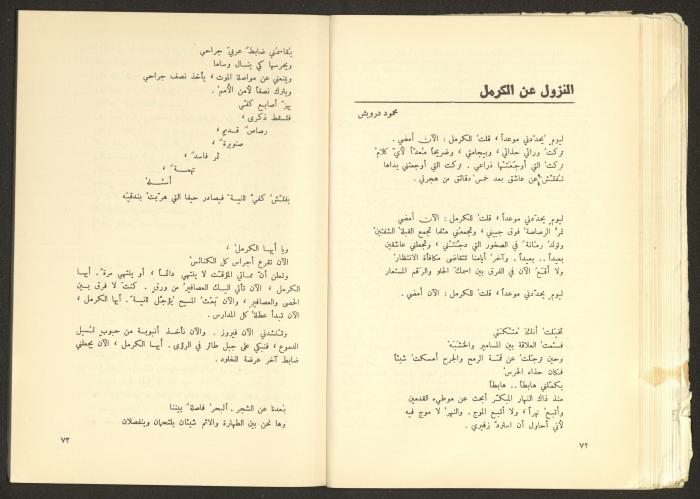 النزول عن الكرمل
محمود درويش
ليوم يحدّدني موعداً ، قلت للكرمل : الآن أمضي .
تركتُ ورائي حذائي ، وبيجامتي ، وضريحاً مُعدّاً لأيّ كلام
تركتُ التي أوجعَتْها ذراعي . تركت التي أوجعتني يداها
تفتّش عن عاشق بعد خمس دقائق من هجرتي .
ليوم يحدّدني موعداً ، قلت للكرمل : الآن أمضي
تمرّ الرصاصة فوق جبيني ، وتجمعني مثلما تجمع القبلة الشفتين
وتولد رمّانة في الصخور التي دجّنتْني ، وتجعلني عاشقين
بعيداً .. بعيداً . وآخر أيامنا تتقاضى مكافأة الانتظار
ولا أقع الآن في الفرق بين اسمك الحار والرقم المستعار
ليوم يحدّدني موعداً ، قلت للكرمل : الآن أمضي .
تخيّلت أنك مُتّكئي
فسمّت العلاقة بين المسامير والخشبة
وحين ترجّلت عن قمّة الرمح والجرح أمسكت شيئاً
فكان حذاء الحرس
يكمّلني هابطاً .. هابطاً
منذ ذاك النهار المبكّر أبحث عن موطىء القدمين
وأتبع نهراً ، ولا أتبع الموج . والنهر لا موج فيه
لأني أحاول أن أستردّ زفيري .
٧٢
يُقاسمني ضابط عربيّ جراحي
ويحرسها كي ينال وساما
ويمنعني عن مواصلة الموت ، يأخذ نصف جراحي
ويترك نصفاً لأمن الأمم .
يهزّ أصابع كفّي
فتسقط ذكرى ،
رصاص قديم ،
صنوبرة ،
ثمر فاسد ،
تهمة ،
أسئلة
يفتّش كفّي ثانية فيصادر حيفا التي هرّبت بندقية
ويا أيها الكرمل ،
الآن تقرع أجراس كل الكنائس
وتعلن أنّ مماتي المؤقّت لا ينتهي دائماً ، أو ينتهي مرة . أيها
الكرمل ، الآن تأتي إليك العصافير من ورق . كنت لا فرق بين
الحصى والعصافير ، والآن بَعْثُ المسيح يُؤجّل ثانية . أيها الكرمل ،
الآن تبدأ عطلة كل المدارس .
وتنشدني الآن فيروز . والآن نأخذ أنبوبة من حبوب تُسيل
الدموع ، فنبكي على جبل طائر في الرؤى . أيها الكرمل ، الآن يجعلني
ضابط آخر عرضة للخلود .
بعدنا عن الشجر . البحر فاصلة بيننا
وها نحن بين الطهارة والاثم شيئان يلتحمان وينفصلان
٧٣